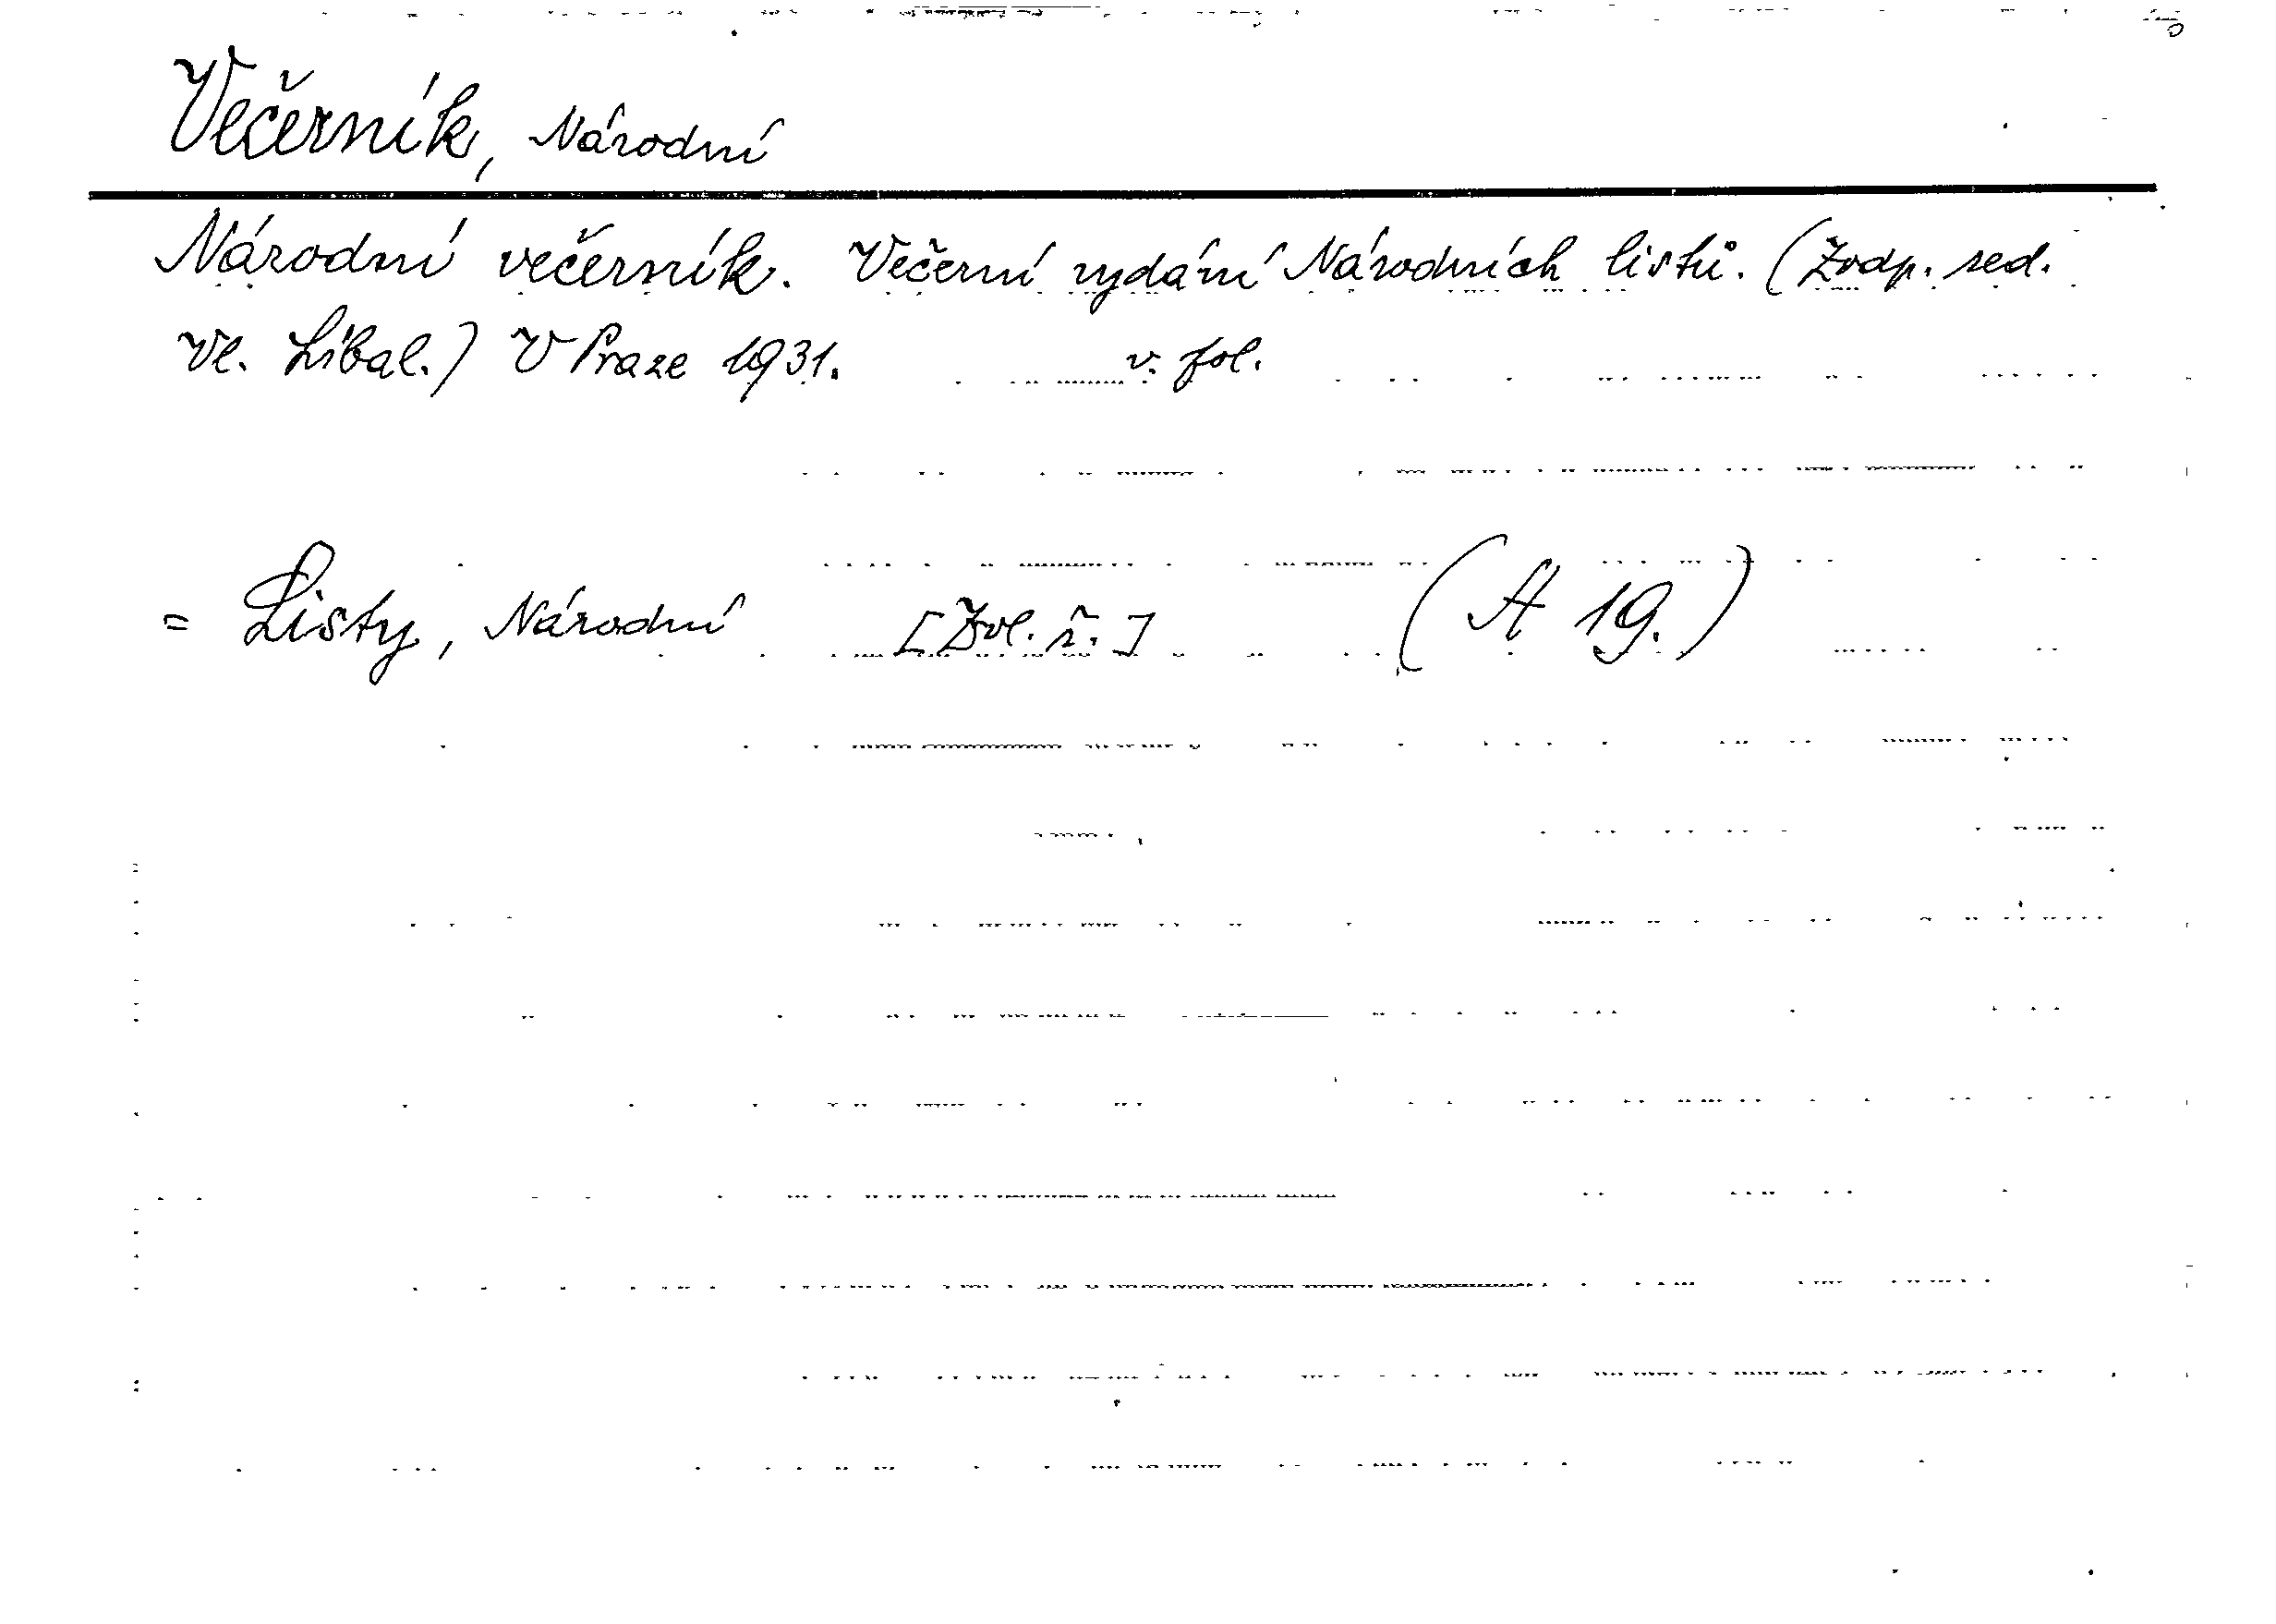 Večerník, Národní
Národní večerník. Večerní vydání Národních listů. (Zodp. red.
Vl. Líbal.) V Praze 1931. v. fol.
= Listy, Národní [Zvl. ř.] (A 19.)